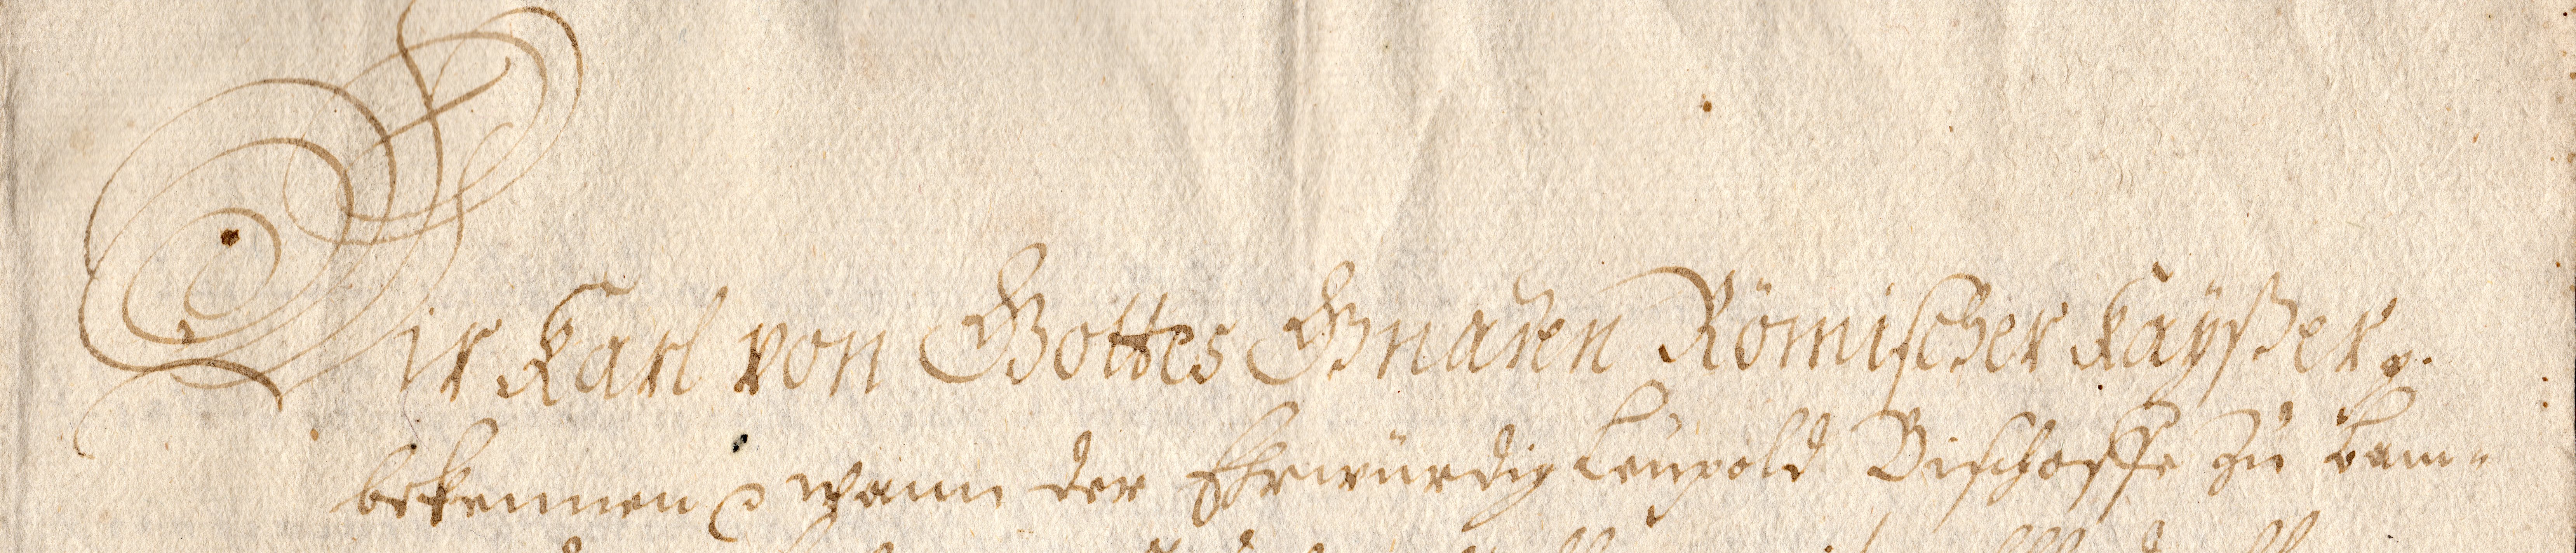 Wir Karl von Gottes Gnaden Römischer Kayßer ꝛc.
bekennen ꝛc wann der Ehrwürdig Leupold Bischoffe zu Bam-